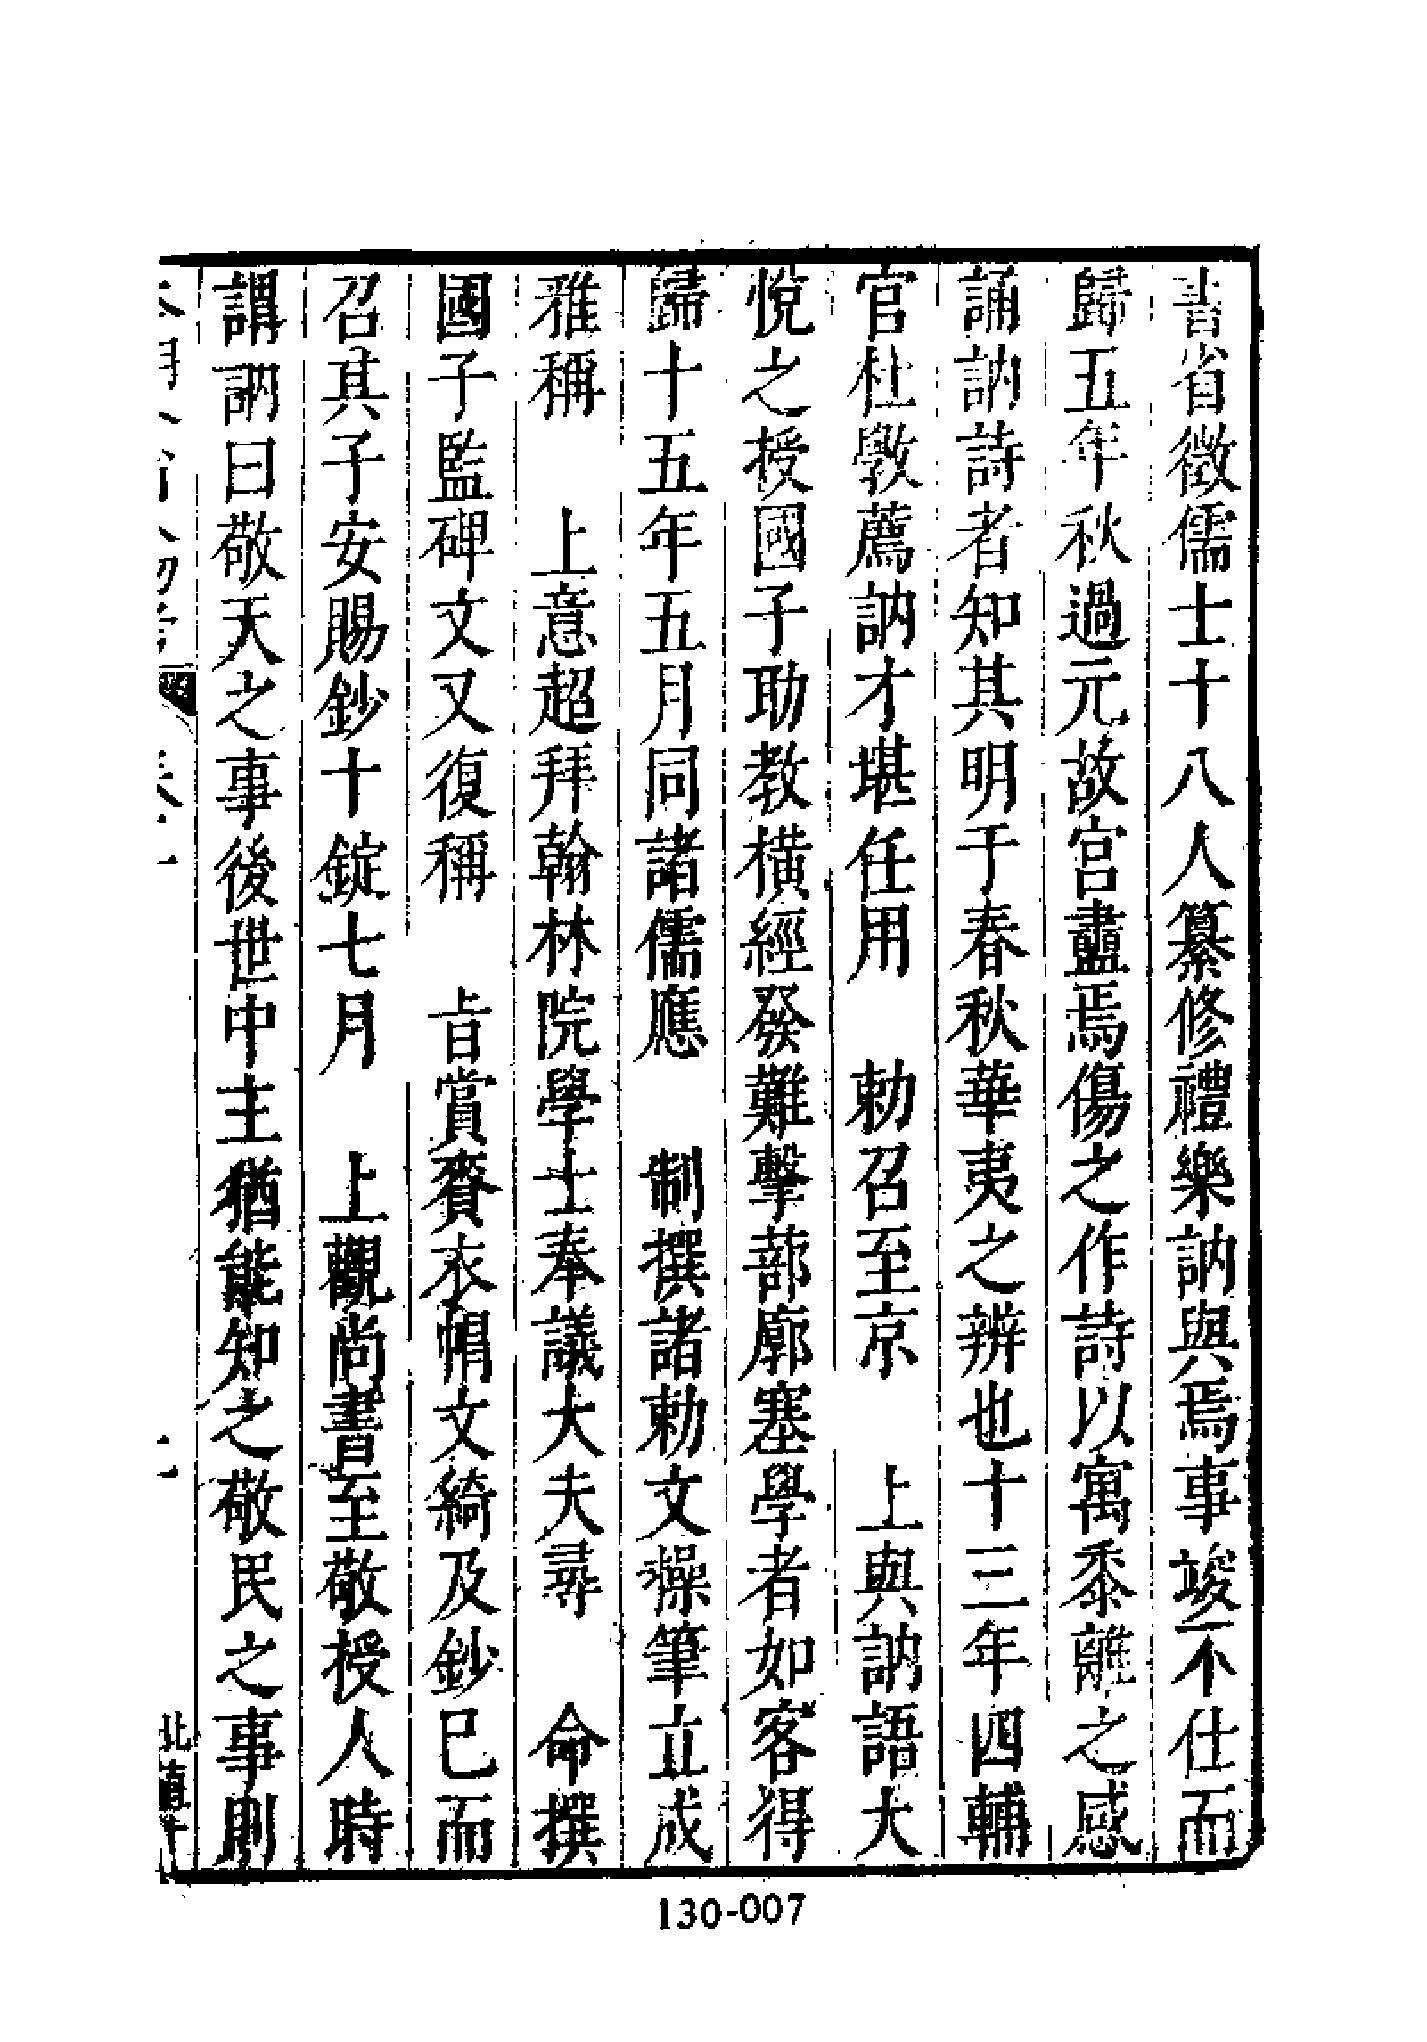 書省徵儒士十八人纂修禮樂訥與焉事竣不仕而
歸五年秋過元故宫盡焉傷之作詩以寓黍離之感
誦訥詩者知其明于春秋華夷之辨也十三年四輔
官杜斆薦訥才堪任用　勅召至京　上與訥語大
悅之授國子助教橫經發難擊蔀廓塞學者如客得
歸十五年五月同諸儒應　制撰諸勅文操筆立成
雅稱　上意超拜翰林院學士奉議大夫尋　命撰
國子監碑文又復稱　旨賞賚衣帽文綺及鈔巳而
召其子安賜鈔十錠七月　上觀尚書至敬授人時
謂訥曰敬天之事後世中主猶能知之敬民之事則
130-007